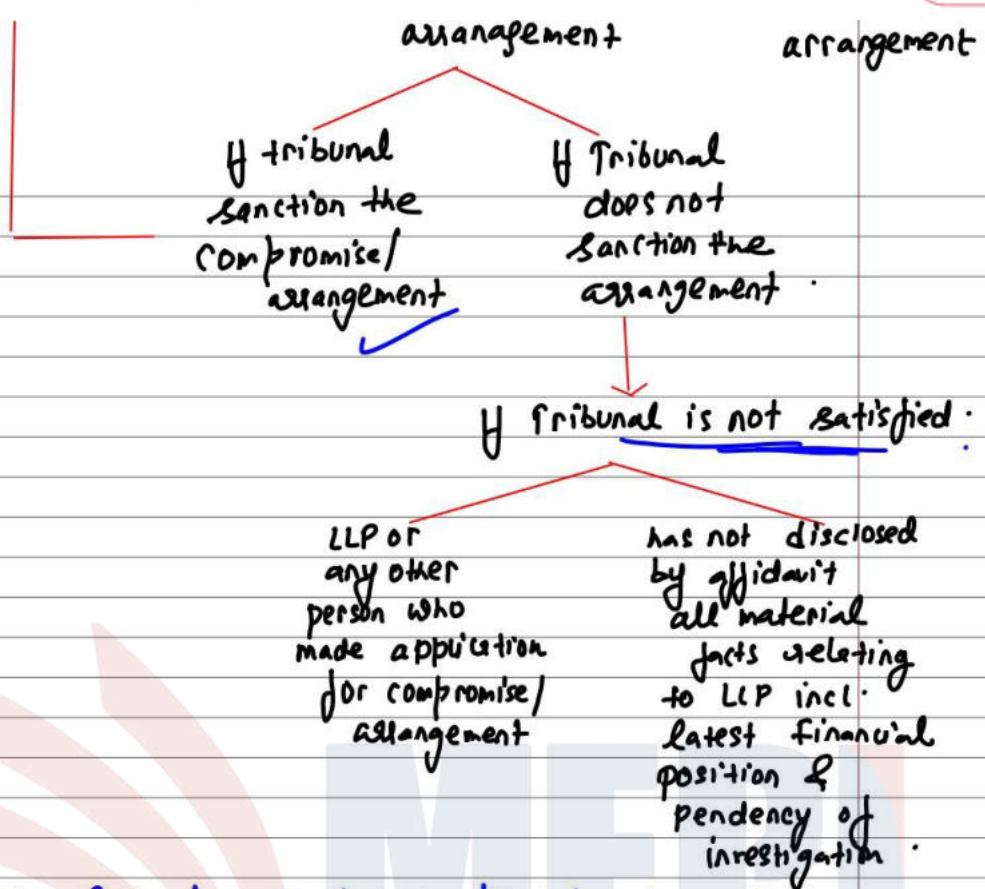 arrangement
arrangement
If tribunal
sanction the
compromise/
arrangement
If Tribunal
does not
sanction the
arrangement.
If Tribunal is not satisfied.
LLP or
any other
person who
made application
for compromise/
arrangement
has not disclosed
by affidavit
all material
facts relating
to LLP incl.
latest financial
position &
pendency of
investigation.